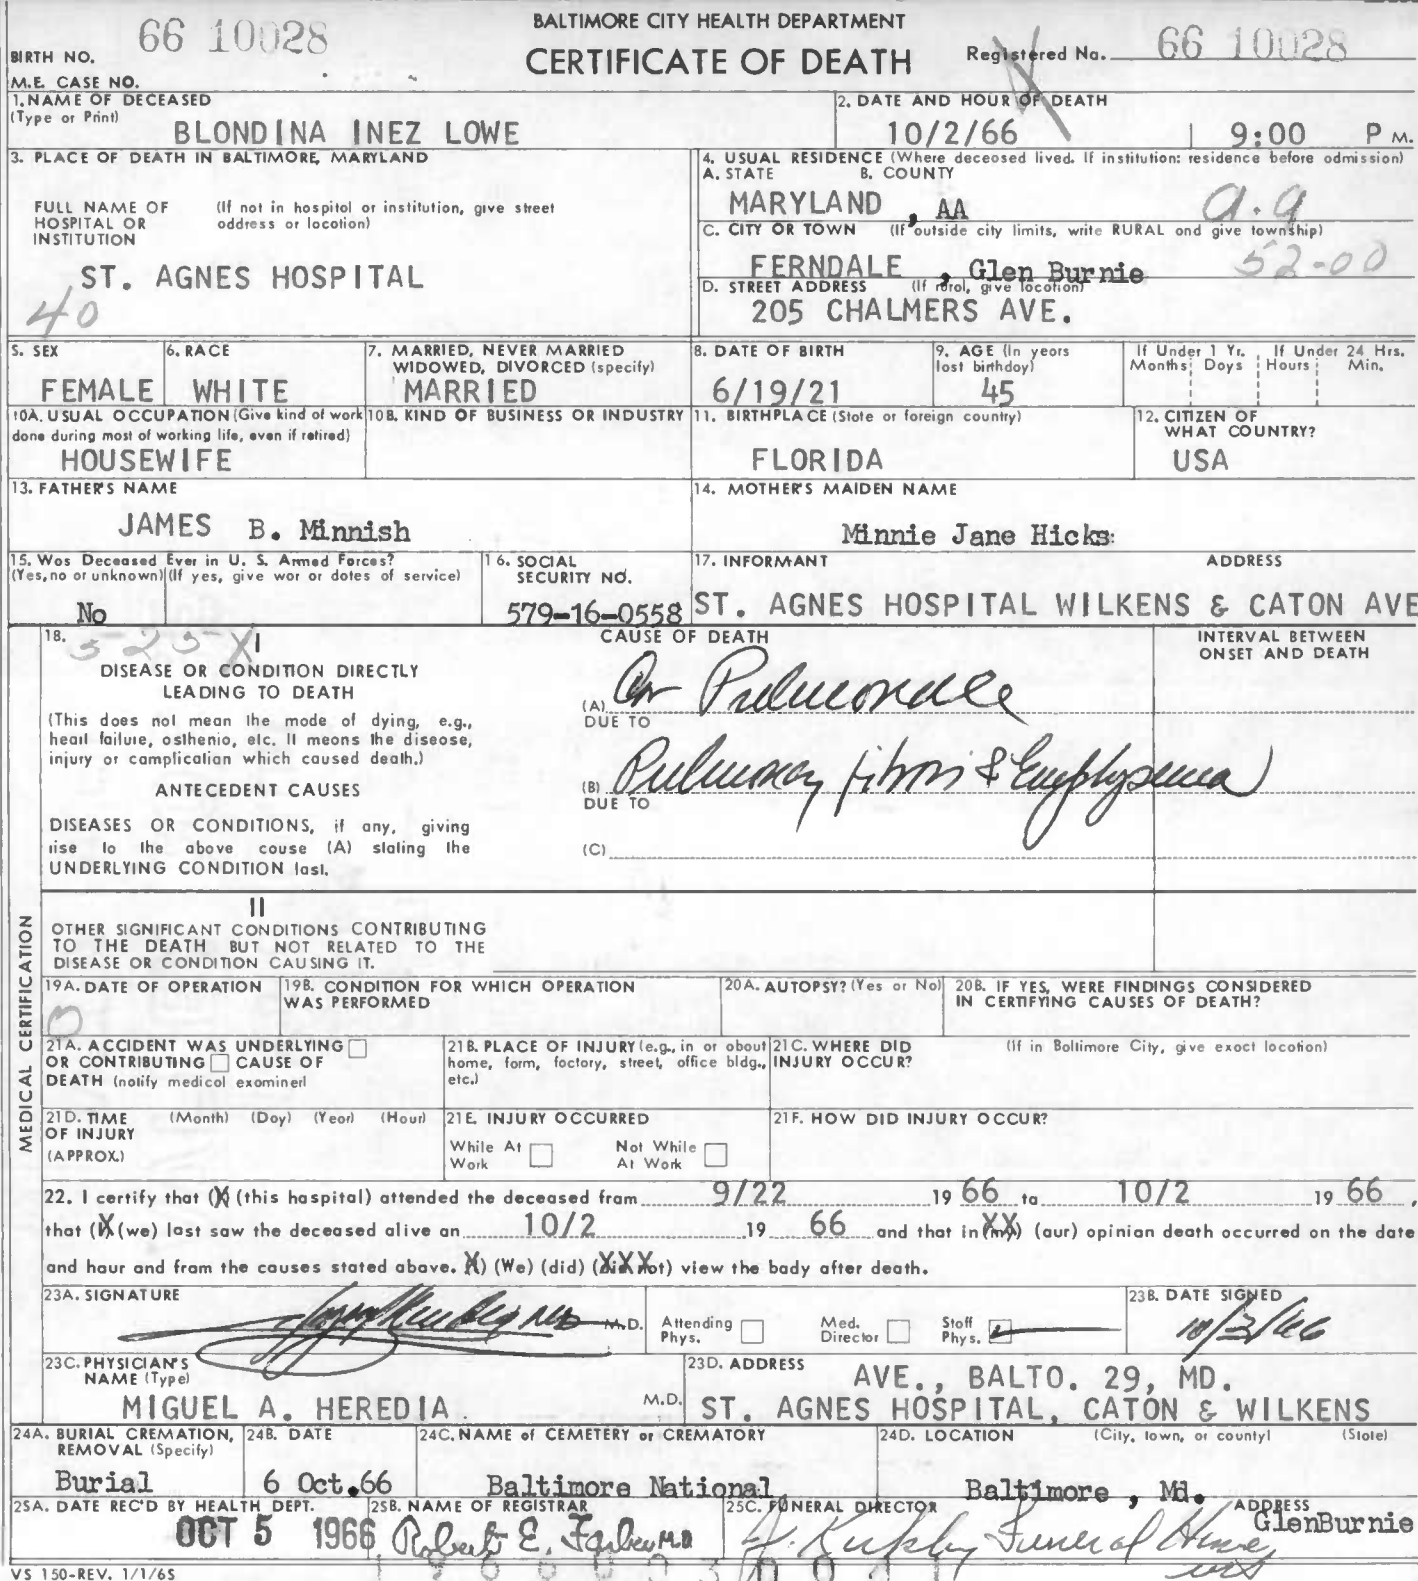 BALTIMORE CITY HEALTH DEPARTMENT
CERTIFICATE OF DEATH
BIRTH NO. 66 10028
Registered No. 66 10028
M.E. CASE NO.
1. NAME OF DECEASED
(Type or Print)
BLONDINA INEZ LOWE
2. DATE AND HOUR OF DEATH
10/2/66 9:00 P M.
3. PLACE OF DEATH IN BALTIMORE, MARYLAND
FULL NAME OF HOSPITAL OR INSTITUTION
(If not in hospital or institution, give street address or location)
ST. AGNES HOSPITAL
40
4. USUAL RESIDENCE (Where deceased lived. If institution: residence before admission)
A. STATE B. COUNTY
MARYLAND , AA a.a
C. CITY OR TOWN (If outside city limits, write RURAL and give township)
FERNDALE , Glen Burnie 52-00
D. STREET ADDRESS (If rural, give location)
205 CHALMERS AVE.
5. SEX
FEMALE
6. RACE
WHITE
7. MARRIED, NEVER MARRIED
WIDOWED, DIVORCED (specify)
MARRIED
8. DATE OF BIRTH
6/19/21
9. AGE (In years last birthday)
45
If Under 1 Yr. If Under 24 Hrs.
Months Days Hours Min.
10A. USUAL OCCUPATION (Give kind of work done during most of working life, even if retired)
HOUSEWIFE
10B. KIND OF BUSINESS OR INDUSTRY
11. BIRTHPLACE (State or foreign country)
FLORIDA
12. CITIZEN OF WHAT COUNTRY?
USA
13. FATHER'S NAME
JAMES B. Minnish
14. MOTHER'S MAIDEN NAME
Minnie Jane Hicks
15. Was Deceased Ever in U. S. Armed Forces?
(Yes, no or unknown) (If yes, give war or dates of service)
No
16. SOCIAL SECURITY NO.
579-16-0558
17. INFORMANT ADDRESS
ST. AGNES HOSPITAL WILKENS & CATON AVE
18. I
CAUSE OF DEATH
INTERVAL BETWEEN ONSET AND DEATH
DISEASE OR CONDITION DIRECTLY
LEADING TO DEATH
(This does not mean the mode of dying, e.g.,
heart failure, asthenia, etc. It means the disease,
injury or complication which caused death.)
(A) Cor Pulmonale
DUE TO
ANTECEDENT CAUSES
(B) Pulmonary fibrosis & Emphysema
DUE TO
DISEASES OR CONDITIONS, if any, giving
rise to the above cause (A) stating the
UNDERLYING CONDITION last.
(C)
II
OTHER SIGNIFICANT CONDITIONS CONTRIBUTING
TO THE DEATH BUT NOT RELATED TO THE
DISEASE OR CONDITION CAUSING IT.
MEDICAL CERTIFICATION
19A. DATE OF OPERATION
19B. CONDITION FOR WHICH OPERATION WAS PERFORMED
20A. AUTOPSY? (Yes or No)
20B. IF YES, WERE FINDINGS CONSIDERED IN CERTIFYING CAUSES OF DEATH?
21A. ACCIDENT WAS UNDERLYING
OR CONTRIBUTING CAUSE OF
DEATH (notify medical examiner)
21B. PLACE OF INJURY (e.g., in or about home, farm, factory, street, office bldg., etc.)
21C. WHERE DID INJURY OCCUR? (If in Baltimore City, give exact location)
21D. TIME OF INJURY (APPROX.) (Month) (Day) (Year) (Hour)
21E. INJURY OCCURRED
While At Work Not While At Work
21F. HOW DID INJURY OCCUR?
22. I certify that (X) (this hospital) attended the deceased from 9/22 19 66 to 10/2 19 66,
that (X) (we) last saw the deceased alive on 10/2 19 66 and that in (XX) (our) opinion death occurred on the date
and hour and from the causes stated above. X) (We) (did) (XXX not) view the body after death.
23A. SIGNATURE
M.D.
Attending Phys. Med. Director Staff Phys.
23B. DATE SIGNED
10/3/66
23C. PHYSICIAN'S NAME (Type)
MIGUEL A. HEREDIA M.D.
23D. ADDRESS
AVE., BALTO. 29, MD.
ST. AGNES HOSPITAL, CATON & WILKENS
24A. BURIAL CREMATION, REMOVAL (Specify)
Burial
24B. DATE
6 Oct.66
24C. NAME of CEMETERY or CREMATORY
Baltimore National
24D. LOCATION (City, town, or county) (State)
Baltimore , Md.
25A. DATE REC'D BY HEALTH DEPT.
OCT 5 1966
25B. NAME OF REGISTRAR
Robert E. Farber M.D.
25C. FUNERAL DIRECTOR ADDRESS
Funeral Home GlenBurnie
VS 150-REV. 1/1/65